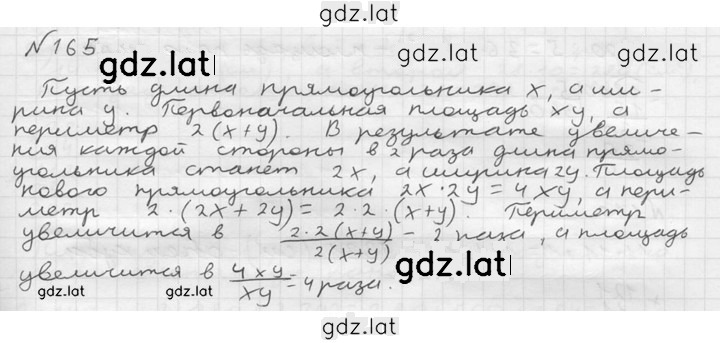 gdz.lat
№165
gdz.lat
Пусть длина прямоугольника x, а ши-
рина y. Первоначальная площадь xy, а
периметр 2(x+y). В результате увеличе-
ния каждой стороны в 2 раза длина прямо-
угольника станет 2x, а ширина 2y. Площадь
нового прямоугольника 2x·2y = 4xy, а пери-
метр 2·(2x+2y) = 2·2·(x+y). Периметр
увеличится в 2·2(x+y)/2(x+y) = 2 раза, а площадь
увеличится в 4xy/xy = 4 раза.
gdz.lat
gdz.lat
gdz.lat
gdz.lat